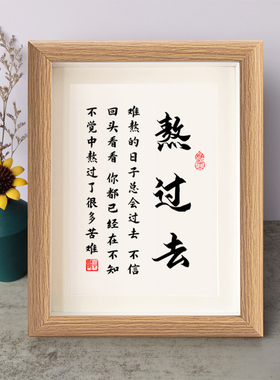 熬过去
难熬的日子总会过去 不信
回头看看 你都已经在不知
不觉中熬过了很多苦难